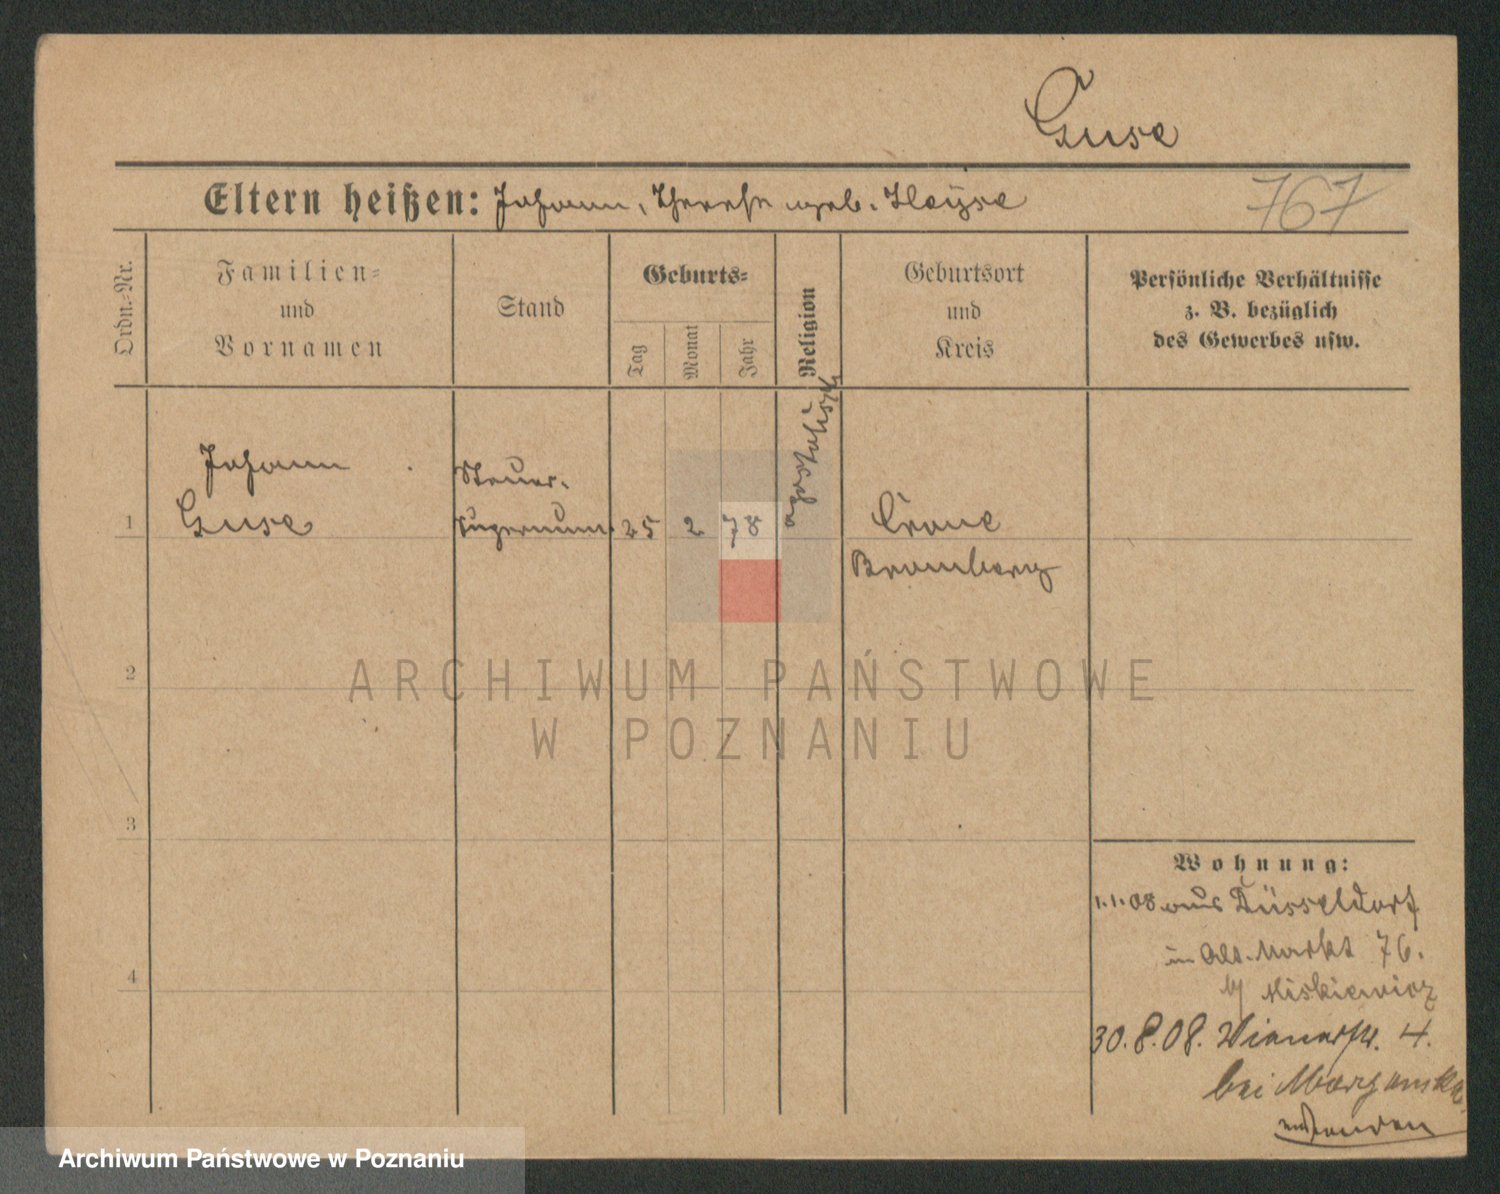 Guse
Eltern heißen: Johann, Therese geb. Heyse
767
Ordn.=Nr.
Familien=
und
Vornamen
Stand
Geburts=
Tag
Monat
Jahr
Religion
Geburtsort
und
Kreis
Persönliche Verhältnisse
z. B. bezüglich
des Gewerbes usw.
1
Johann
Guse
Steuer-
25
2
78
Crone
Bromberg
2
3
4
Wohnung:
1.1.08 aus Düsseldorf
in Alt. Markt 76.
b/ Miskiewicz
30.8.08. Wienerstr. 4.
bei
ARCHIWUM PAŃSTWOWE
W POZNANIU
Archiwum Państwowe w Poznaniu